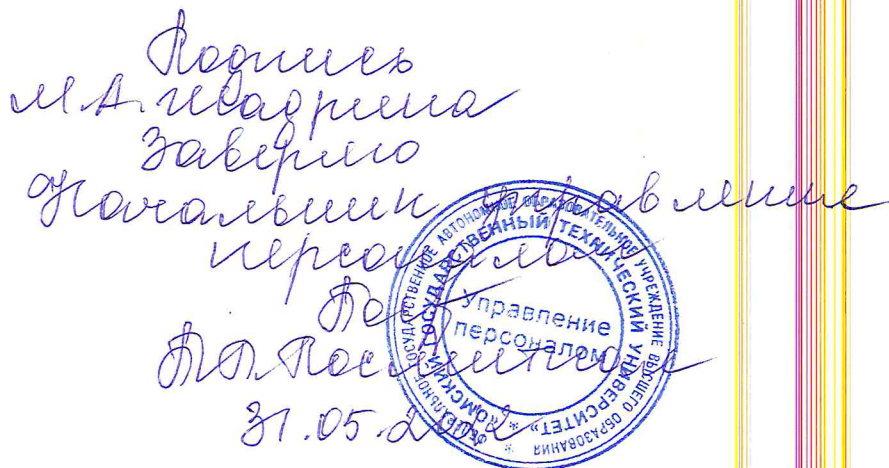 Подпись
М.А. Шадрина
Заверяю
Начальник управления
персоналом
31.05.2022
ФЕДЕРАЛЬНОЕ ГОСУДАРСТВЕННОЕ АВТОНОМНОЕ ОБРАЗОВАТЕЛЬНОЕ УЧРЕЖДЕНИЕ ВЫСШЕГО ОБРАЗОВАНИЯ
«ОМСКИЙ ГОСУДАРСТВЕННЫЙ ТЕХНИЧЕСКИЙ УНИВЕРСИТЕТ»
Управление
персоналом